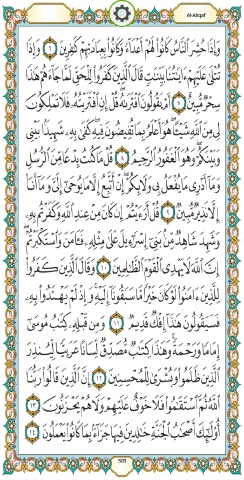 Al-Ahqaf
وَإِذَا حُشِرَ ٱلنَّاسُ كَانُوا۟ لَهُمْ أَعْدَآءً وَكَانُوا۟ بِعِبَادَتِهِمْ كَٰفِرِينَ ٦ وَإِذَا
تُتْلَىٰ عَلَيْهِمْ ءَايَٰتُنَا بَيِّنَٰتٍ قَالَ ٱلَّذِينَ كَفَرُوا۟ لِلْحَقِّ لَمَّا جَآءَهُمْ هَٰذَا
سِحْرٌ مُّبِينٌ ٧ أَمْ يَقُولُونَ ٱفْتَرَىٰهُ ۖ قُلْ إِنِ ٱفْتَرَيْتُهُۥ فَلَا تَمْلِكُونَ
لِى مِنَ ٱللَّهِ شَيْـًٔا ۖ هُوَ أَعْلَمُ بِمَا تُفِيضُونَ فِيهِ ۖ كَفَىٰ بِهِۦ شَهِيدًۢا بَيْنِى
وَبَيْنَكُمْ ۖ وَهُوَ ٱلْغَفُورُ ٱلرَّحِيمُ ٨ قُلْ مَا كُنتُ بِدْعًا مِّنَ ٱلرُّسُلِ
وَمَآ أَدْرِى مَا يُفْعَلُ بِى وَلَا بِكُمْ ۖ إِنْ أَتَّبِعُ إِلَّا مَا يُوحَىٰٓ إِلَىَّ وَمَآ أَنَا۠
إِلَّا نَذِيرٌ مُّبِينٌ ٩ قُلْ أَرَءَيْتُمْ إِن كَانَ مِنْ عِندِ ٱللَّهِ وَكَفَرْتُم بِهِۦ
وَشَهِدَ شَاهِدٌ مِّنۢ بَنِىٓ إِسْرَٰٓءِيلَ عَلَىٰ مِثْلِهِۦ فَـَٔامَنَ وَٱسْتَكْبَرْتُمْ ۖ
إِنَّ ٱللَّهَ لَا يَهْدِى ٱلْقَوْمَ ٱلظَّٰلِمِينَ ١٠ وَقَالَ ٱلَّذِينَ كَفَرُوا۟
لِلَّذِينَ ءَامَنُوا۟ لَوْ كَانَ خَيْرًا مَّا سَبَقُونَآ إِلَيْهِ ۚ وَإِذْ لَمْ يَهْتَدُوا۟ بِهِۦ
فَسَيَقُولُونَ هَٰذَآ إِفْكٌ قَدِيمٌ ١١ وَمِن قَبْلِهِۦ كِتَٰبُ مُوسَىٰٓ
إِمَامًا وَرَحْمَةً ۚ وَهَٰذَا كِتَٰبٌ مُّصَدِّقٌ لِّسَانًا عَرَبِيًّا لِّيُنذِرَ
ٱلَّذِينَ ظَلَمُوا۟ وَبُشْرَىٰ لِلْمُحْسِنِينَ ١٢ إِنَّ ٱلَّذِينَ قَالُوا۟ رَبُّنَا
ٱللَّهُ ثُمَّ ٱسْتَقَٰمُوا۟ فَلَا خَوْفٌ عَلَيْهِمْ وَلَا هُمْ يَحْزَنُونَ ١٣
أُو۟لَٰٓئِكَ أَصْحَٰبُ ٱلْجَنَّةِ خَٰلِدِينَ فِيهَا جَزَآءًۢ بِمَا كَانُوا۟ يَعْمَلُونَ ١٤
503